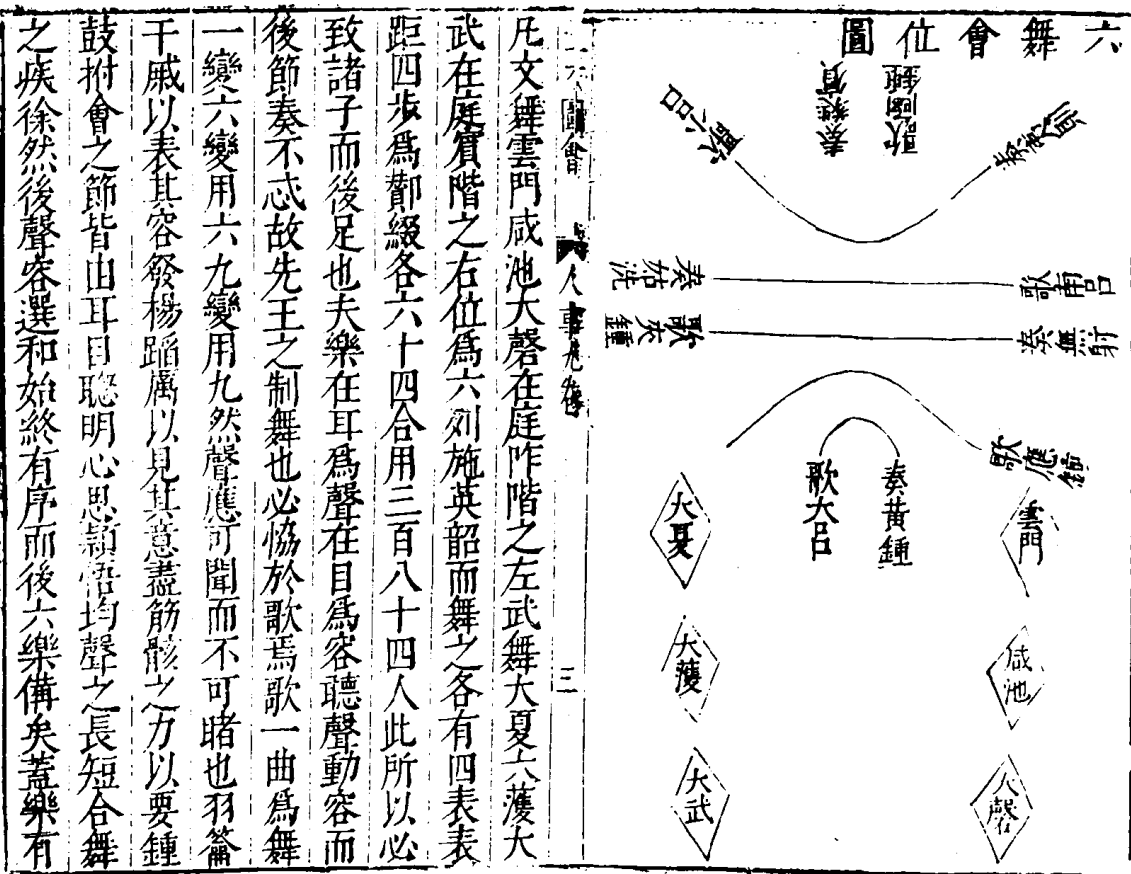 六舞會位圖
奏蕤賓
歌函鍾
歌小呂
奏夷則
奏姑洗
歌南呂
歌夾鍾
奏無射
歌應鍾
奏黃鍾
歌大呂
雲門
大夏
咸池
大濩
大磬
大武
三
凡文舞雲門咸池大磬在庭阼階之左武舞大夏大濩大
武在庭賓階之右位為六列施英韶而舞之各有四表表
距四步為酇綴各六十四合用三百八十四人此所以必
致諸子而後足也夫樂在耳為聲在目為容聽聲動容而
後節奏不忒故先王之制舞也必恊於歌焉歌一曲為舞
一變六變用六九變用九然聲應可聞而不可睹也羽籥
干戚以表其容發楊蹈厲以見其意盡筋骸之力以要鍾
鼓拊會之節皆由耳目聰明心思穎悟均聲之長短合舞
之疾徐然後聲容選和始終有序而後六樂備矣蓋樂有